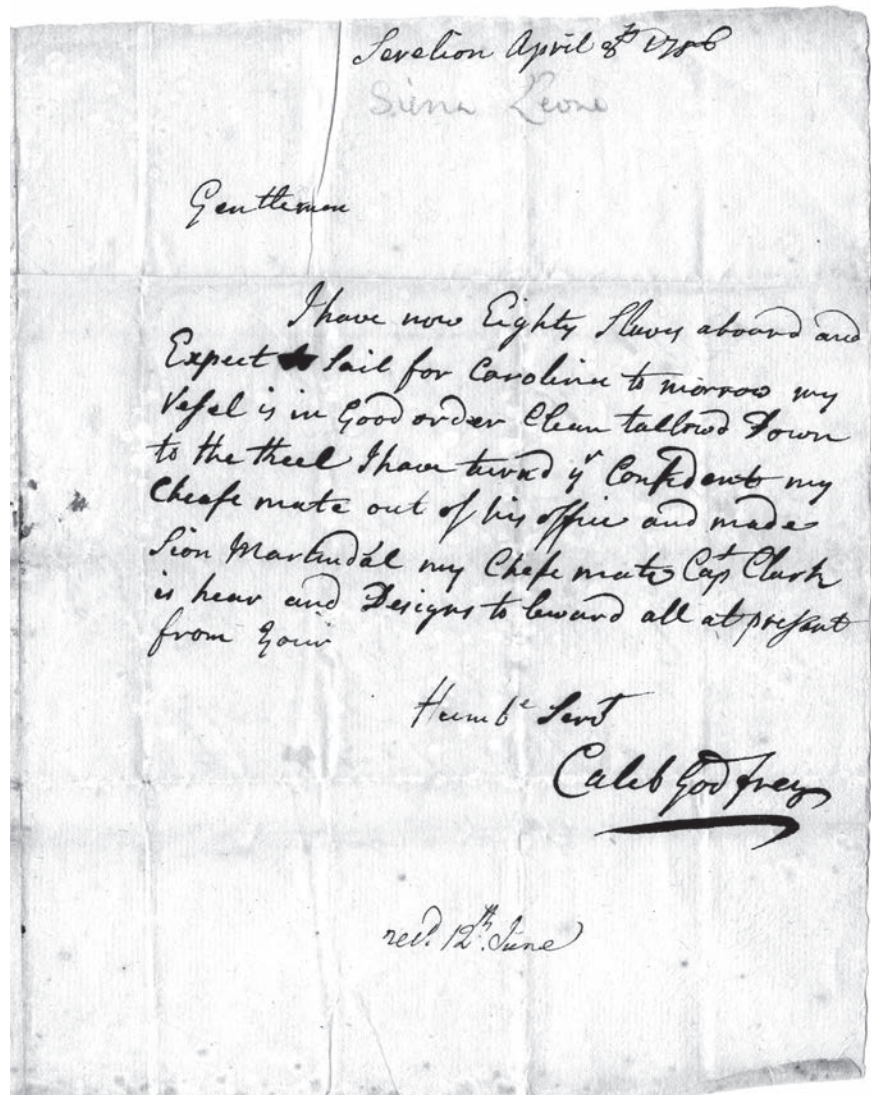 Serelion April 8th 1756
Sierra Leone
Gentlemen
I have now Eighty Slaves aboard and
Expect to Sail for Carolina to morrow my
Vessel is in Good order Clean tallowd Down
to the Keel I have turnd yr Confident my
Cheafe mate out of his office and made
Sion Martindal my Chefe mate Capt Clark
is hear and Designs to leward all at pressent
from your
Humbe Servt
Caleb Godfrey
recd. 12th. June